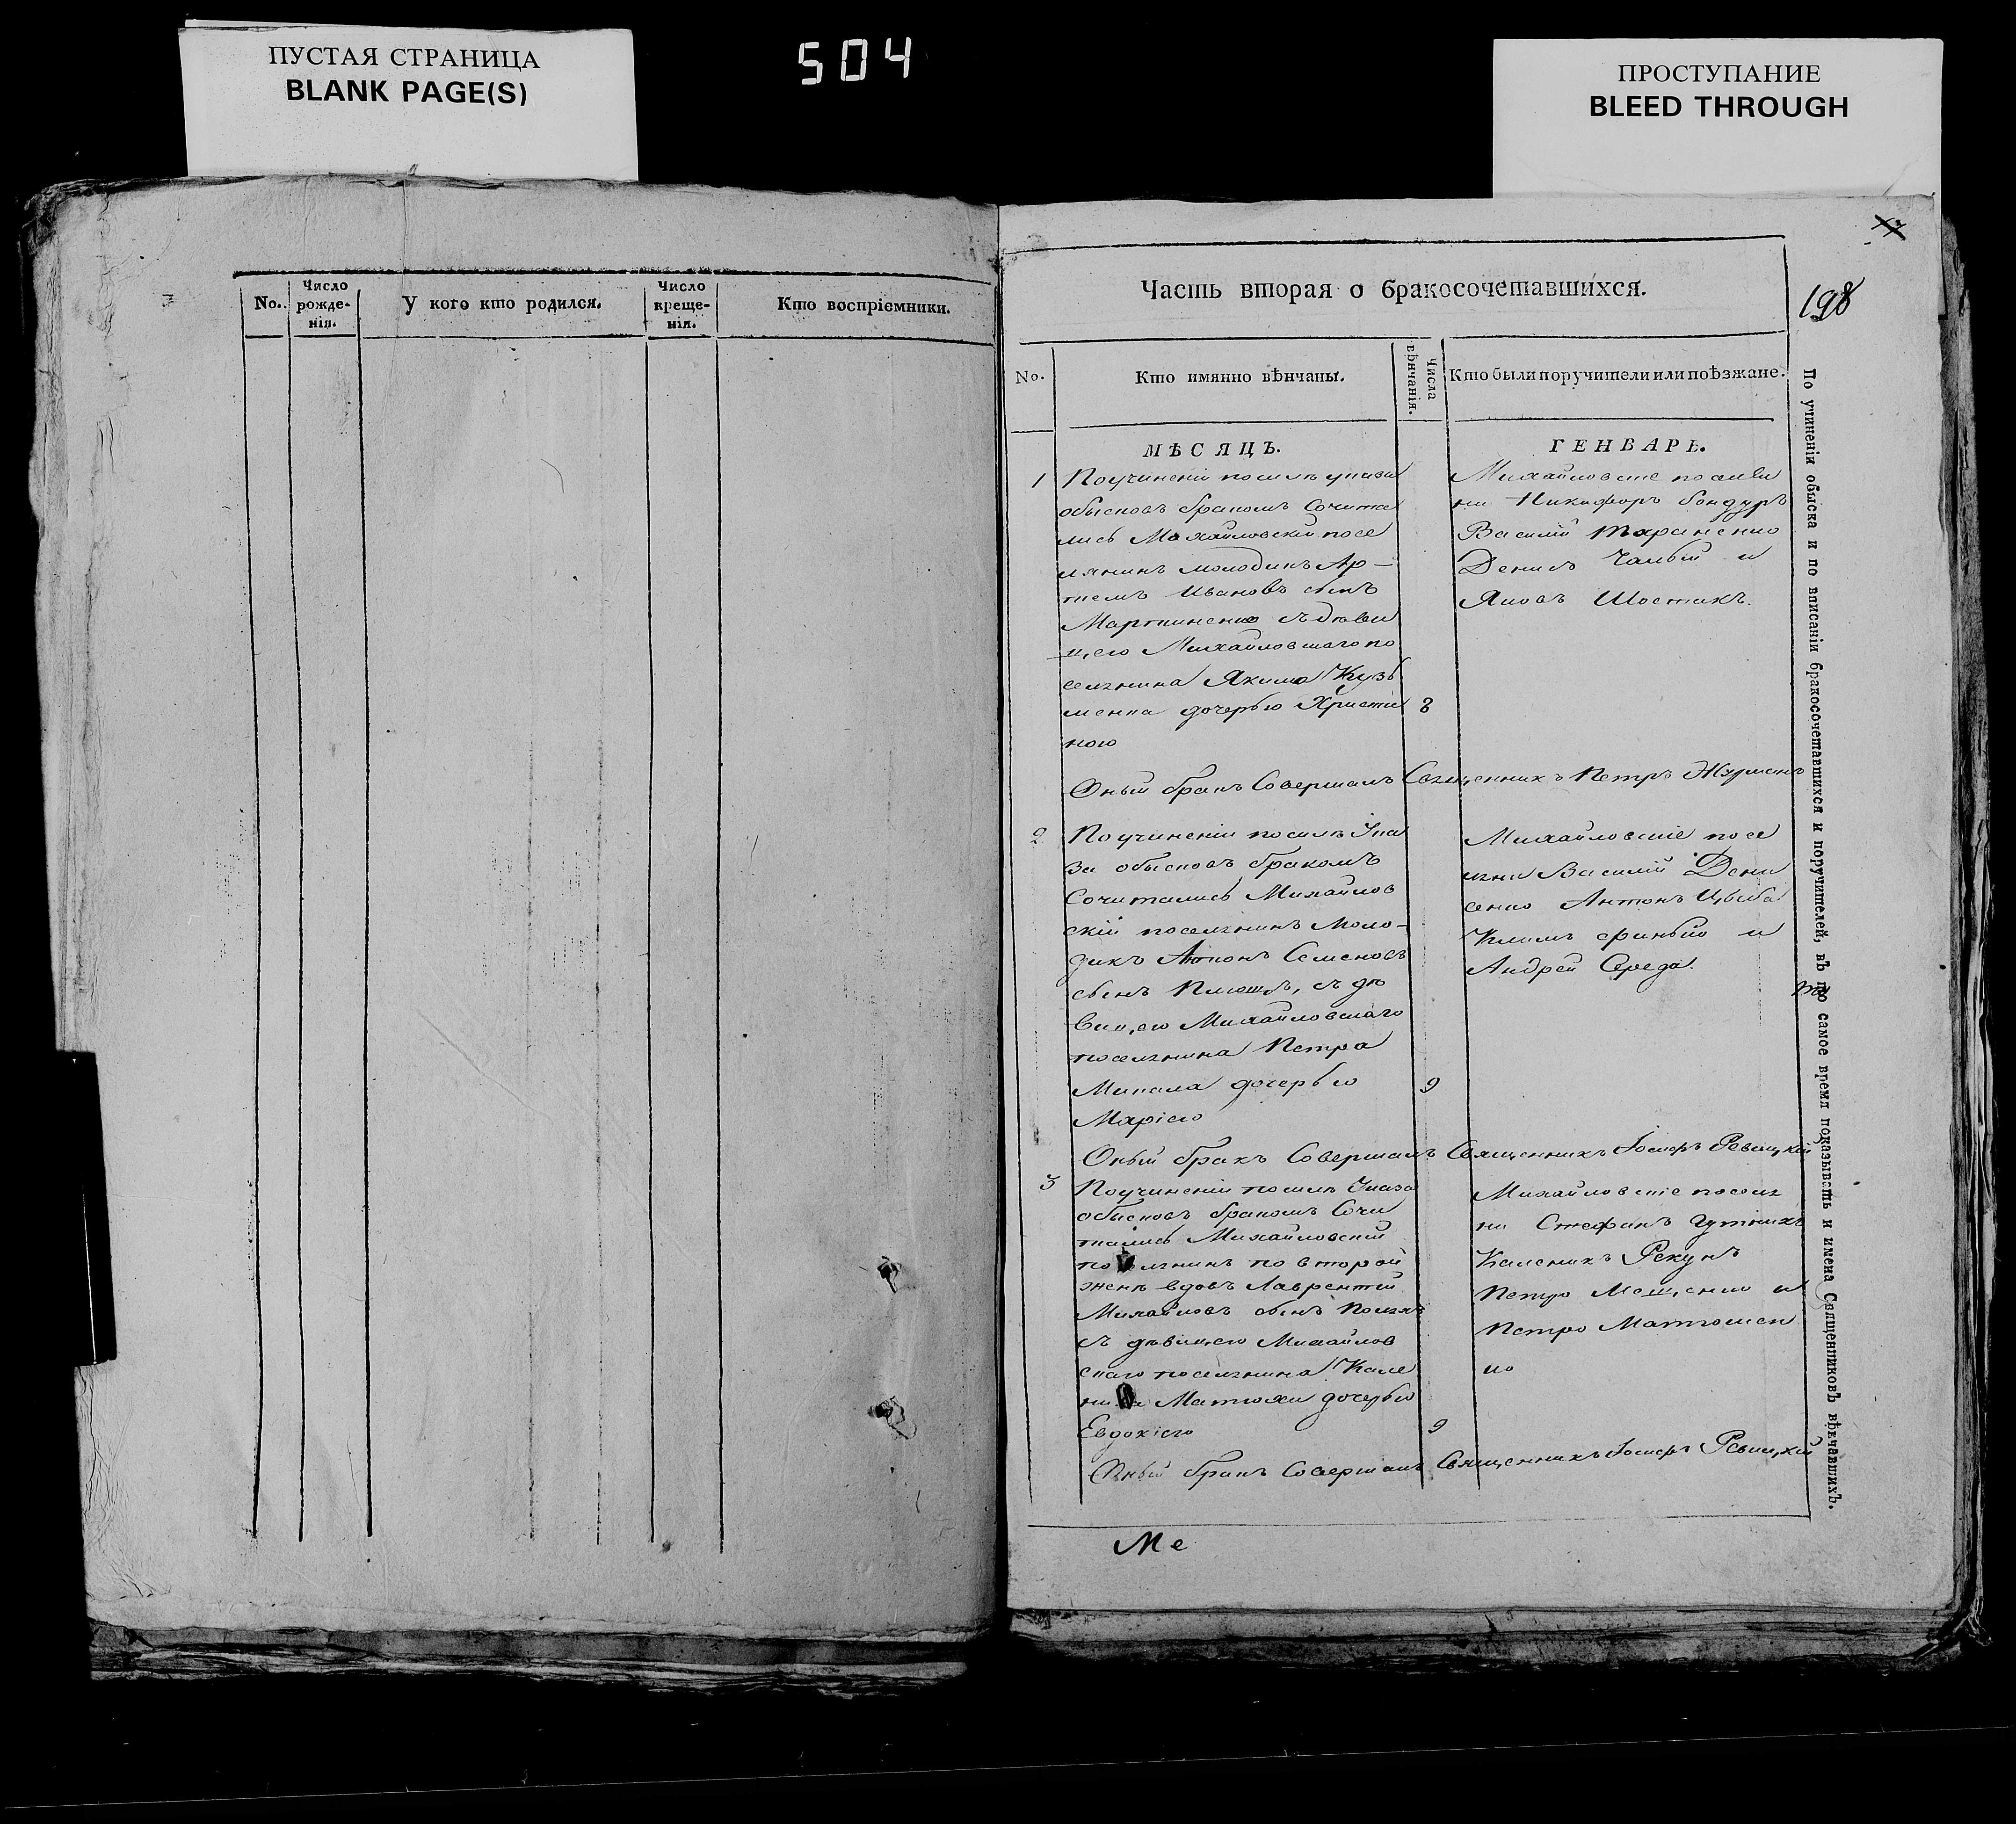 ПУСТАЯ СТРАНИЦА
BLANK PAGE(S)
504
ПРОСТУПАНИЕ
BLEED THROUGH
No.
Число рожде-нія.
У кого кто родился.
Число креще-нія.
Кто воспріемники.
198
Часть вторая о бракосочетавшихся.
No.
Кто имянно вѣнчаны.
Числа вѣнчанія.
Кто были поручители или поѣзжане.
МѢСЯЦЪ.
ГЕНВАРЬ.
1
Поучиненіи посилѣ указа
обысковъ бракомъ Сочита
лись Михайловскій посе
лянинъ молодикъ Ар-
тіемъ Ивановъ сынъ
Мартиненко съ дѣви
цею Михайловскаго по
селянина Якима Кузь
менка дочерью Христи
8
ною
Михайловскіе поселя
не Никифоръ бондуръ
Василій Тараненко
Денисъ Чалый и
Яковъ Шостикъ.
Оный бракъ Совершалъ Священникъ Петръ
2
Поучиненіи посилѣ Ука
за обысковъ бракомъ
Сочитались Михайлов
скій поселянинъ Моло-
дикъ Антонъ Семеновъ
сынъ съ дѣ
вицею Михайловскаго
поселянина Петра
дочерью
9
Маріею
Михайловскіе посе
ляне Василій Дени
сенко Антонъ Цыба
Климъ и
Андрей Середа.
Оный бракъ Совершалъ Священникъ Іосифъ Ревицкій
3
Поучиненіи посилѣ Указа
обысковъ бракомъ Сочи
тались Михайловскій
поселянинъ по второй
женѣ вдовъ Лаврентій
Михайловъ сынъ
съ дѣвицею Михайлов
скаго поселянина Кале
ника Матюхи дочерью
Евдокіею
9
Михайловскіе поселя
не Стефанъ Гутникъ
Каленикъ Рекунъ
Петро Мещенко и
Петро Матюшен
ко
Оный бракъ Совершалъ Священникъ Іосифъ Ревицкій
Ме
По учиненіи обыска и по вписаніи бракосочетавшихся и поручителей, въ то самое время показывать и имена Священниковъ вѣнчавшихъ.